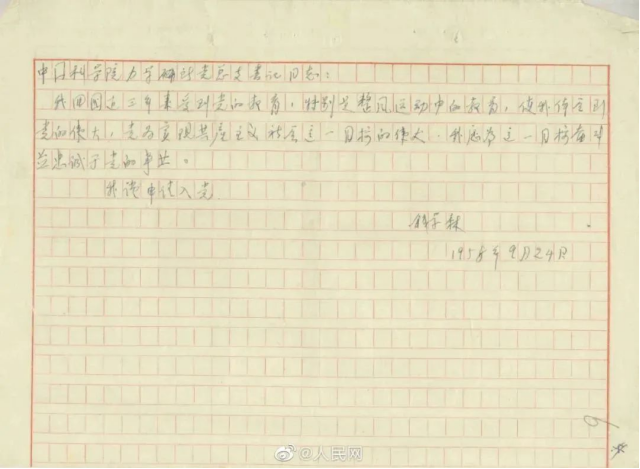 中国科学院力学研究所党总支书记同志:
我回国近三年来受到党的教育,特别是整风运动中的教育,使我体会到
党的伟大,党为实现共产主义社会这一目标的伟大。我愿为这一目标奋斗
并忠诚于党的事业。
我谨申请入党
钱学森
1958年9月24日
9
@人民网